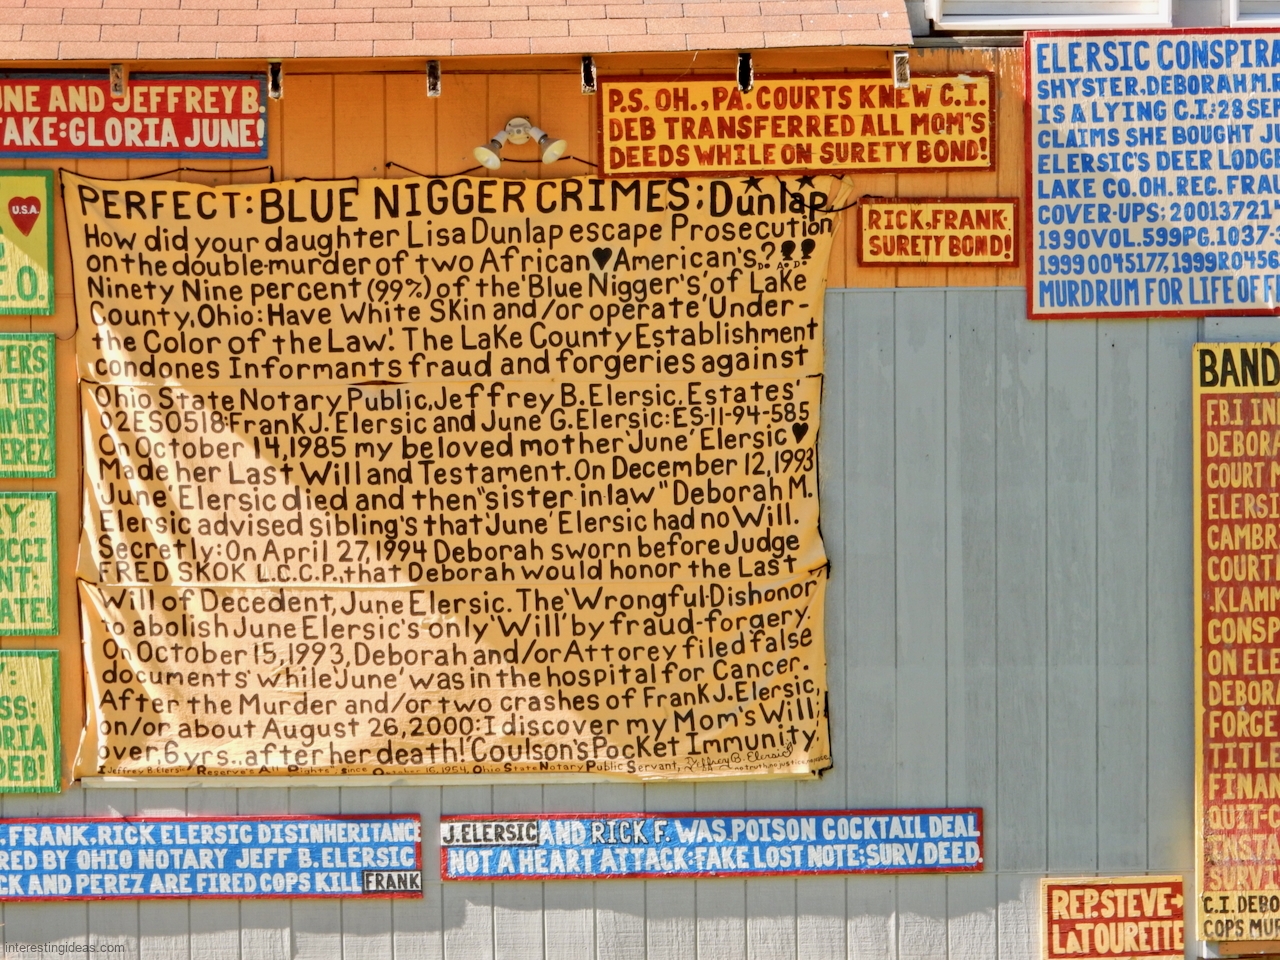 UNE AND JEFFREY B.
TAKE:GLORIA JUNE!
P.S. OH., PA. COURTS KNEW C.I.
DEB TRANSFERRED ALL MOM'S
DEEDS WHILE ON SURETY BOND!
ELERSIC CONSPIRA
SHYSTER, DEBORAH M.E
IS A LYING C.I.:28 SE
CLAIMS SHE BOUGHT JU
ELERSIC'S DEER LODGE
LAKE CO. OH. REC. FRAU
COVER-UPS: 20013721
1990 VOL. 599 PG. 1037-
19990045177, 1999R0456
MURDRUM FOR LIFE OF F
U.S.A.
.O.
RICK, FRANK.
SURETY BOND!
PERFECT: BLUE NIGGER CRIMES; Dunlap
How did your daughter Lisa Dunlap escape Prosecution
on the double-murder of two African♥American's.?
Ninety Nine percent (99%) of the 'Blue Nigger's' of Lake
County, Ohio: Have White Skin and/or operate 'Under-
the Color of the Law'. The Lake County Establishment
condones Informants fraud and forgeries against
Ohio State Notary Public, Jeffrey B. Elersic. Estates'
02ES0518:Frank J. Elersic and June G. Elersic: ES-11-94-585
On October 14, 1985 my beloved mother 'June' Elersic♥
Made her Last Will and Testament. On December 12, 1993
'June' Elersic died and then "sister in law" Deborah M.
Elersic advised sibling's that 'June' Elersic had no Will.
Secretly: On April 27, 1994 Deborah sworn before Judge
FRED SKOK L.C.C.P. that Deborah would honor the Last
Will of Decedent, June Elersic. The 'Wrongful-Dishonor
to abolish June Elersic's only 'Will' by fraud-forgery.
On October 15, 1993, Deborah and/or Attorey filed false
documents' while 'June' was in the hospital for Cancer.
After the Murder and/or two crashes of Frank J. Elersic,
on/or about August 26, 2000: I discover my Mom's Will;
over, 6 yrs.. after her death! Coulson's Pocket Immunity.
I Jeffrey B. Elersic Reserve's All Rights' since October 16, 1954. Ohio State Notary Public Servant, Jeffrey B. Elersic
ERS
TER
MER
EREZ
RY:
UCCI
NT:
ATE!
SS:
ORIA
DEB!
BAND
F.B.I. IN
DEBOR
COURT M
ELERSI
CAMBR
COURT
.KLAMM
CONSP
ON ELE
DEBOR
FORGE
TITLE
FINAN
QUIT-C
INSTA
SURVIV
C.I. DEBO
COPS MUR
., FRANK, RICK ELERSIC DISINHERITANCE
RED BY OHIO NOTARY JEFF B. ELERSIC
CK AND PEREZ ARE FIRED COPS KILL FRANK
J.ELERSIC AND RICK F. WAS POISON COCKTAIL DEAL
NOT A HEART ATTACK:FAKE LOST NOTE;SURV. DEED.
REP. STEVE-
LATOURETTE
interestingideas.com